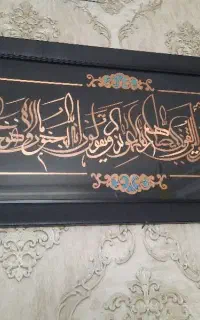 بأبصارهم لما سمعوا الذكر ويقولون إنه لمجنون وما هو